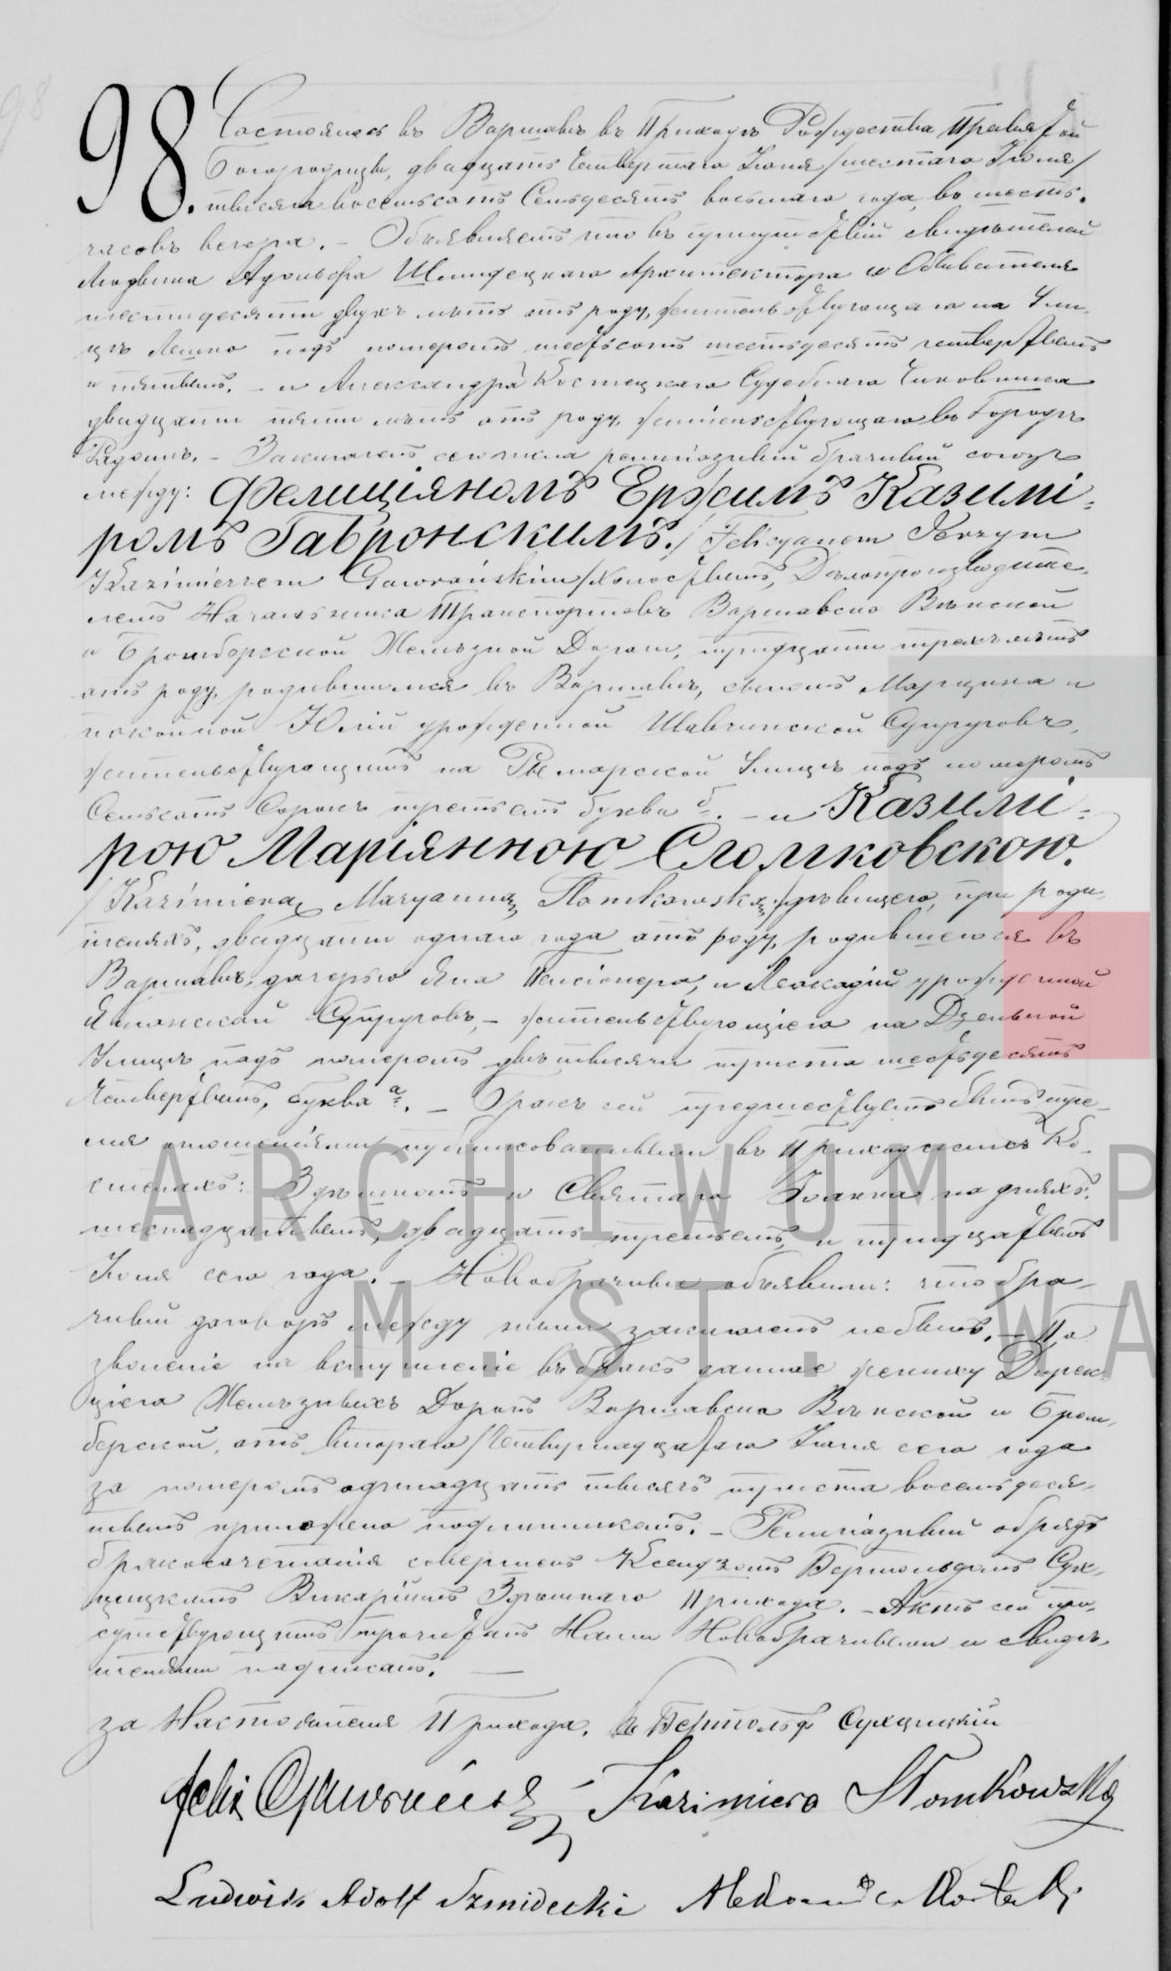 98.
Состоялось въ Варшавѣ въ Приходѣ Рождества Пресвятой
Богородицы, двадцать четвертаго Іюня /шестаго Іюля/
тысяча восемьсотъ семьдесятъ восьмаго года, въ шесть
часовъ вечера. – Объявляемъ что въ присутствіи свидѣтелей
Людвика Адольфа Шмидецкаго Архитектора и Обывателя
шестидесяти двухъ лѣтъ отъ роду, жительствующаго на Ули-
цѣ Лешно подъ номеромъ шестьсотъ шестьдесятъ четвертымъ
и пятымъ. – и Александра Костецкаго Судебнаго Чиновника
двадцати пяти лѣтъ отъ роду, жительствующаго въ Городѣ
– Заключенъ сего числа религіозный брачный союзъ
между: Фелиціяномъ Ержимъ Казимі-
ромъ Гавронскимъ. /Felicyanem Jerzym
Kazimierzem Gawrońskim/ холостымъ, Дѣлопроизводите-
лемъ Начальника Транспортовъ Варшавско Вѣнской
и Бромбергской Желѣзной Дороги, тридцати трехъ лѣтъ
отъ роду, родившимся въ Варшавѣ, сыномъ Марцина и
покойной Юліи урожденной Шавчинской Супруговъ,
жительствующимъ на Рымарской Улицѣ подъ номеромъ
семьсотъ сорокъ третьемъ буква б. – и Казимі-
рою Маріянною Сломковскою.
/Kazimierą Maryanną Słomkowską/ дѣвицею, при роди-
теляхъ, двадцати одного года отъ роду, родившеюся въ
Варшавѣ, дочерью Яна Пенсіонера, и Леокадіи урожденной
Супруговъ, – жительствующею на Дзельной
Улицѣ подъ номеромъ двѣ тысячи триста шестьдесятъ
четвертымъ, буква а. – Бракъ сей предшествуемъ былъ тре-
мя оглашеніями публикованными въ Приходскихъ Ко-
стелахъ: Здѣшнемъ и Святаго Іоанна на дняхъ:
шестнадцатымъ, двадцать третьемъ, и тридцатымъ
Іюня сего года. – Новобрачные объявили: что бра-
чный договоръ между ними заключенъ небылъ. – По
зволеніе на вступленіе въ бракъ данное жениху Дирек-
ціею Желѣзныхъ Дорогъ Варшавско Вѣнской и Бром-
бергской, отъ втораго /четырнадцатаго Іюня сего года
за номеромъ одинадцать тысячъ триста восемьдеся-
тымъ приложено подлинникомъ. – Религіозный обрядъ
бракосочетанія совершенъ Ксендзомъ Бертольдомъ Сух-
цицкимъ Викаріемъ Здѣшняго Прихода. – Актъ сей при-
сутствующимъ прочитанъ Нами Новобрачными и свидѣ-
телями подписанъ. –
за Настоятеля Прихода. Кс Бертольдъ Сухцицкій
Felix Gawroński Kazimiera Słomkowska
Ludwik Adolf Szmidecki Aleksander Kostecki